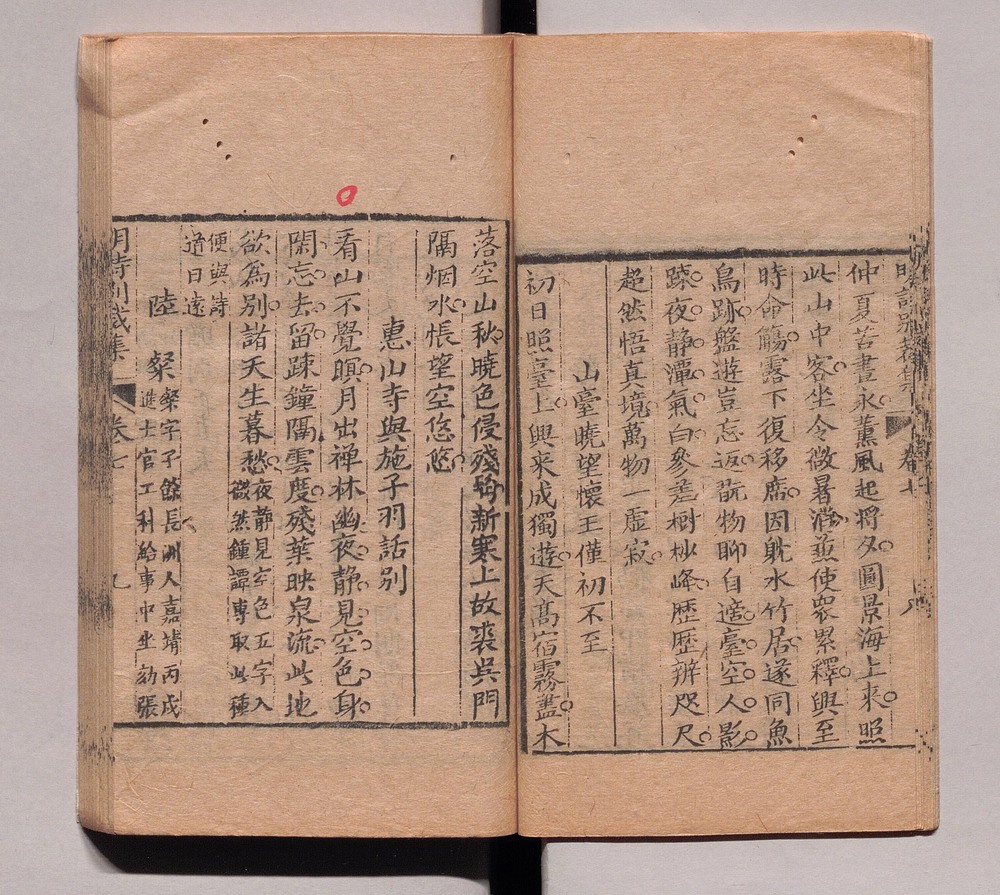 仲夏苦晝永薰風起將夕圓景海上来照
此山中客坐令微暑消並使衆累釋與至
時命觴露下復移席因躭水竹居遂同魚
鳥跡盤遊豈忘返翫物聊自適臺空人影
踈夜静潭氣白參差樹杪峰歴歴辨咫尺
超然悟真境萬物一虚寂
山臺曉望懷王僅初不至
初日照臺上興来成獨遊天髙宿霧盡木
落空山秋曉色侵殘新寒上故裘吳門
隔烟水悵望空悠悠
惠山寺與施子羽話别
看山不覺暝月出禅林幽夜静見空色身
閑忘去留踈鐘隔雲度殘葉映泉流此地
欲為别諸天生暮愁夜静見空色五字入
微然鍾譚專取此種
便與詩
道日逺
陸粲粲字子餘長洲人嘉靖丙戌
進士官工科給事中坐劾張
明詩别裁集 卷七 九